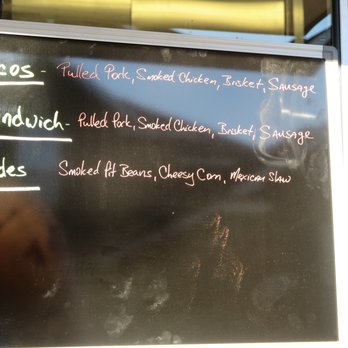 cos - Pulled Pork, Smoked Chicken, Brisket, SAUSAGE
ndwich - Pulled Pork, Smoked Chicken, Brisket, SAUSAGE
des Smoked Pit Beans, Cheesy Corn, Mexican Slaw